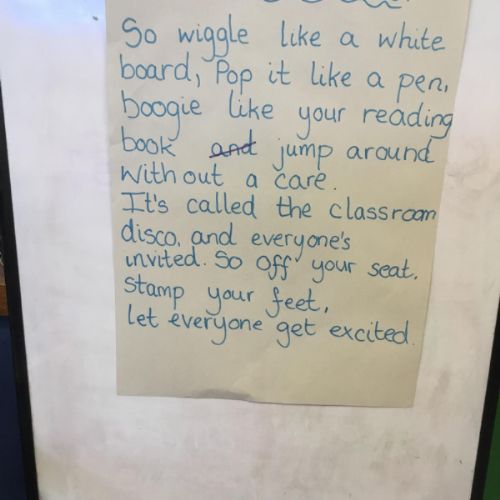 So wiggle like a white
board, Pop it like a pen,
boogie like your reading
book and jump around
without a care.
It's called the classroom
disco, and everyone's
invited. So off your seat,
Stamp your feet,
let everyone get excited.